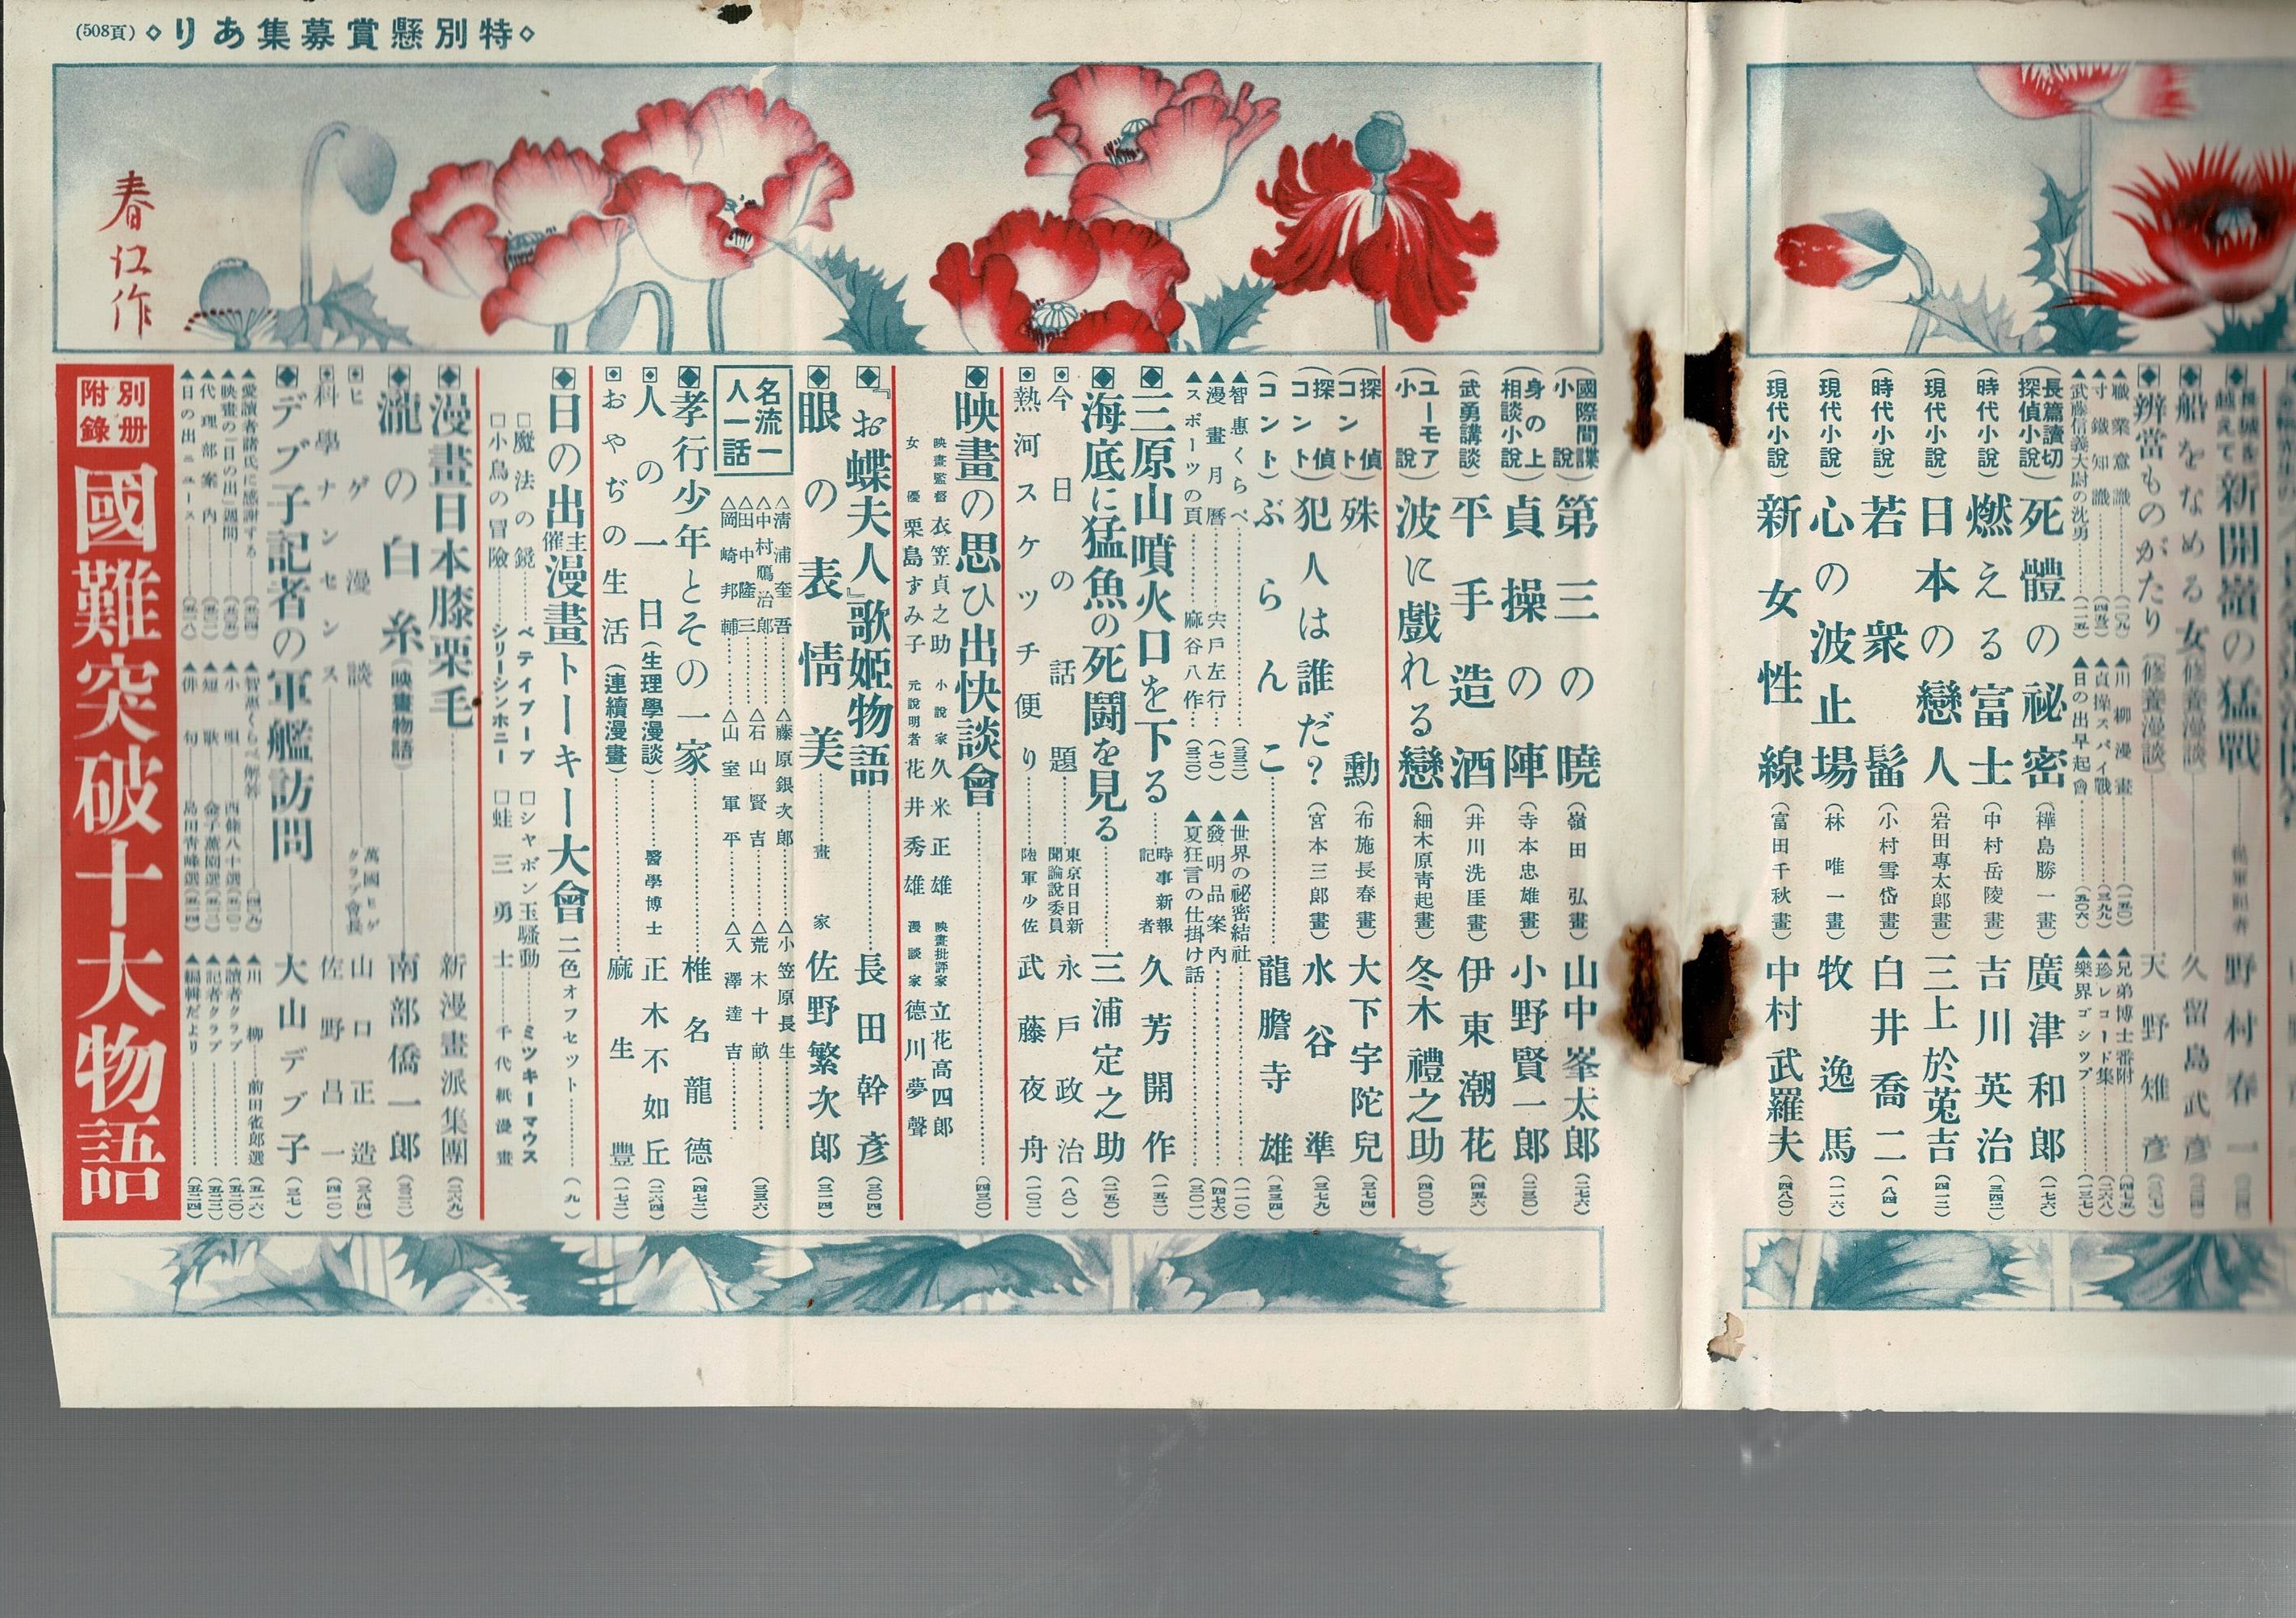 ◇特別懸賞募集あり◇(508頁)
春江作
新開嶺の猛戰 野村春一
船をなめる女(修養漫談) 久留島武彦
辨當ものがたり(修養漫談) 天野雉彦
▲職業意識
▲寸鐵知識
▲武藤信義大尉の沈勇
▲川柳漫畫
▲貞操スパイ戰
▲日の出早起會
▲兄弟博士番附
▲珍レコード集
▲樂界ゴシツプ
(長篇讀切探偵小說)死體の祕密(樺島勝一畫)廣津和郎
(時代小說)燃える富士(中村岳陵畫)吉川英治
(現代小說)日本の戀人(岩田專太郎畫)三上於菟吉
(時代小說)若衆髷(小村雪岱畫)白井喬二
(現代小說)心の波止場(林唯一畫)牧逸馬(一一六)
(現代小說)新女性線(富田千秋畫)中村武羅夫(四八〇)
(國際間諜小說)第三の曉(嶺田弘畫)山中峯太郎(二七六)
(身の上相談小說)貞操の陣(寺本忠雄畫)小野賢一郎(二三〇)
(武勇講談)平手造酒(井川洗厓畫)伊東潮花(四五六)
(ユーモア小說)波に戲れる戀(細木原靑起畫)冬木禮之助(四〇〇)
(探偵コント)殊勳(布施長春畫)大下宇陀兒(三七四)
(探偵コント)犯人は誰だ?(宮本三郎畫)水谷準(三七九)
(コント)ぶらんこ 龍膽寺雄(三三四)
▲智惠くらべ(三三二)
▲漫畫月曆 宍戸左行(七〇)
▲スポーツの頁 麻谷八作(三三〇)
▲世界の祕密結社(一一〇)
▲發明品案內(四七六)
▲夏狂言の仕掛け話(三〇一)
三原山噴火口を下る 時事新報記者 久芳開作(一五二)
海底に猛魚の死鬪を見る 三浦定之助(二五〇)
今日の話題 東京日日新聞論說委員 永戸政治(八〇)
熱河スケツチ便り 陸軍少佐 武藤夜舟(一〇二)
映畫の思ひ出快談會(四三〇)
映畫監督 衣笠貞之助 小說家 久米正雄 映畫批評家 立花高四郎
女優 栗島すみ子 元說明者 花井秀雄 漫談家 德川夢聲
『お蝶夫人』歌姬物語 長田幹彥(三〇四)
眼の表情美 畫家 佐野繁次郎(三一四)
名流一人一話
△淸浦奎吾 △藤原銀次郎 △小笠原長生
△中村鴈治郎 △石山賢吉 △荒木十畝
△田中隆三
△岡崎邦輔 △山室軍平 △入澤達吉(三三六)
孝行少年とその一家 椎名龍德(四七二)
人の一日(生理學漫談) 醫學博士 正木不如丘(二六四)
おやぢの生活(連續漫畫) 麻生豐(一七二)
日の出主催漫畫トーキー大會 二色オフセツト(九)
□魔法の鏡 ベテイブープ □シヤボン玉騷動 ミツキーマウス
□小鳥の冒險 シリーシンホニー □蛙三勇士 千代紙漫畫
漫畫日本膝栗毛 新漫畫派集團(三六九)
瀧の白糸(映畫物語) 南部僑一郎(三三二)
ヒゲ漫談 萬國ヒゲクラブ會長 山口正造(三八四)
科學ナンセンス 佐野昌一(四一〇)
デブ子記者の軍艦訪問 大山デブ子(三七)
▲愛讀者諸氏に感謝する
▲映畫の「日の出」週間
▲代理部案內
▲日の出ニュース
▲智惠くらべ解答
▲小唄 西條八十選
▲短歌 金子薰園選
▲俳句 島川靑峰選
▲川柳 前田雀郎選
▲讀者クラブ
▲記者クラブ
▲編輯だより
別册附錄
國難突破十大物語